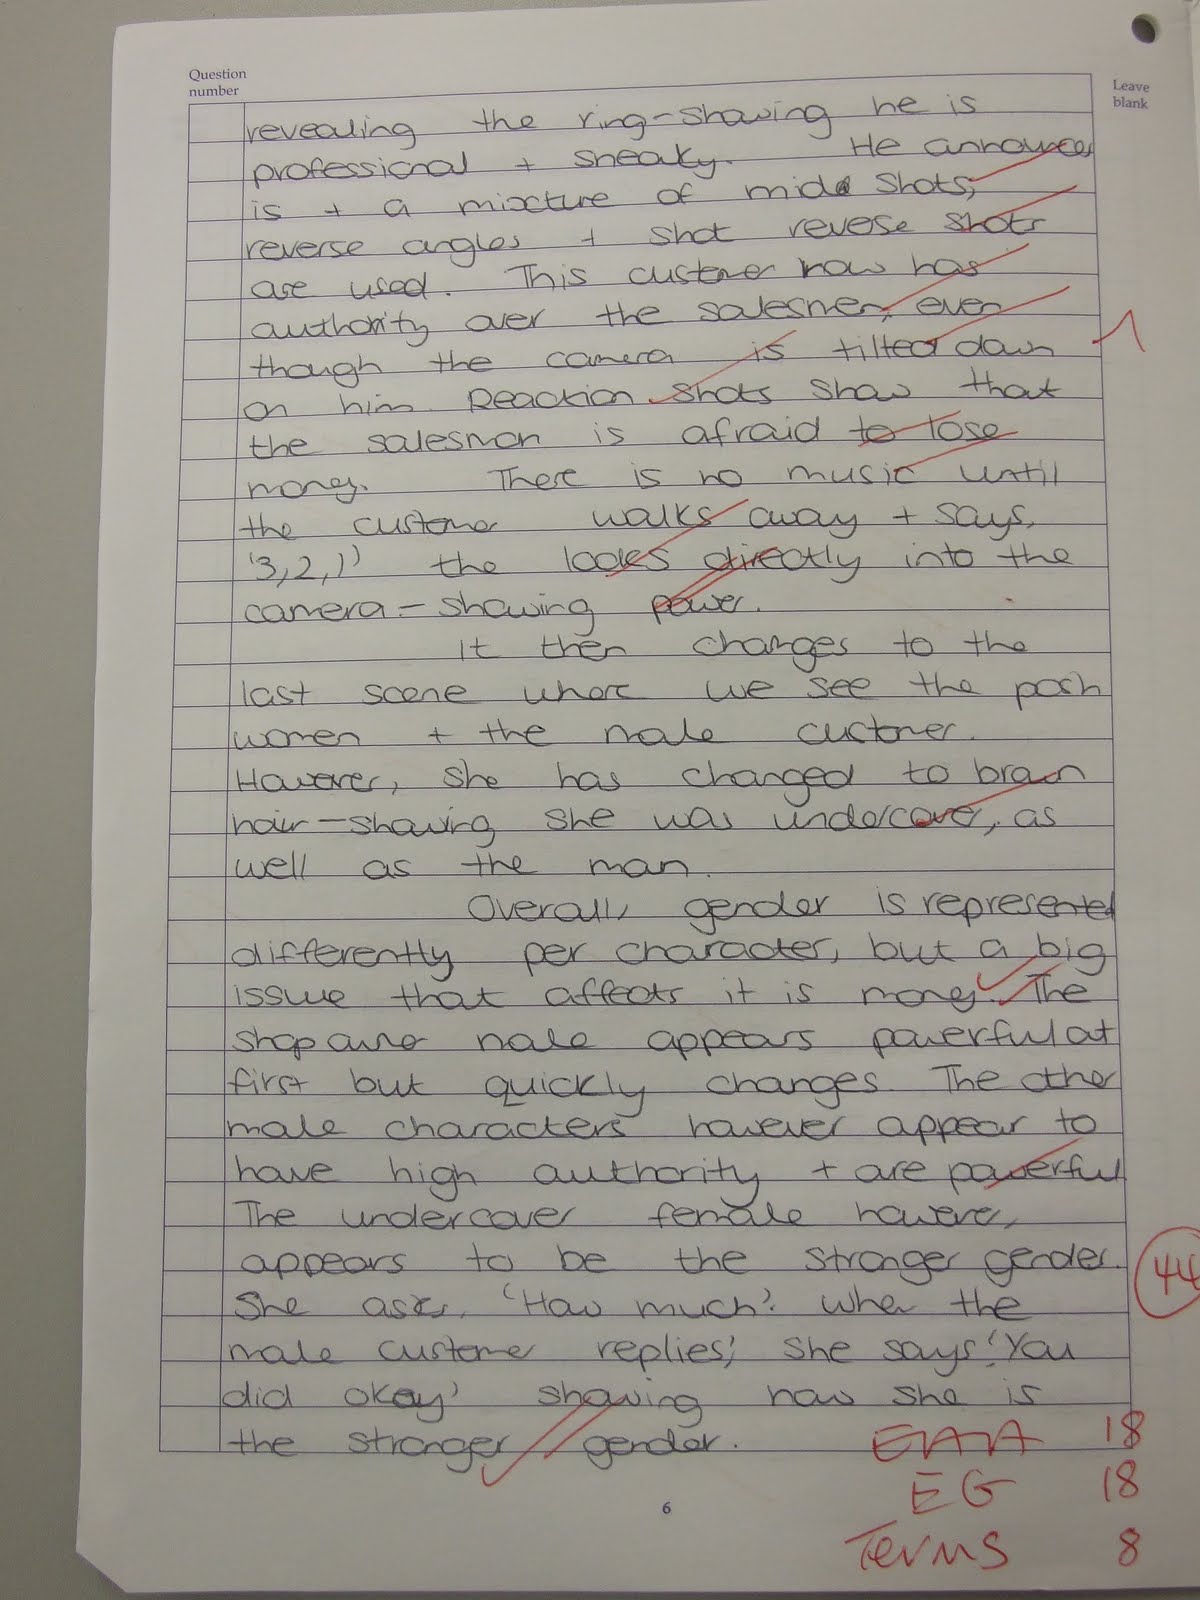 Question
number
Leave
blank
revealing the ring-showing he is
professional + sneaky. He announces
is + a mixture of mid shots,
reverse angles + shot reverse shots
are used. This customer now has
authority over the salesmen, even
though the camera is tilted down
on him. Reaction shots show that
the salesman is afraid to lose
money. There is no music until
the customer walks away + says,
'3,2,1' the looks directly into the
camera - showing power.
It then changes to the
last scene where we see the posh
women + the male customer.
However, she has changed to brown
hair - showing she was undercover, as
well as the man.
Overall, gender is represented
differently per character, but a big
issue that affects it is money. The
shop owner male appears powerful at
first but quickly changes. The other
male characters however appear to
have high authority + are powerful
The undercover female however,
appears to be the stronger gender.
She asks, 'How much'. When the
male customer replies, she says 'You
did okay' showing how she is
the stronger gender.
44
EAA 18
EG 18
Terms 8
6